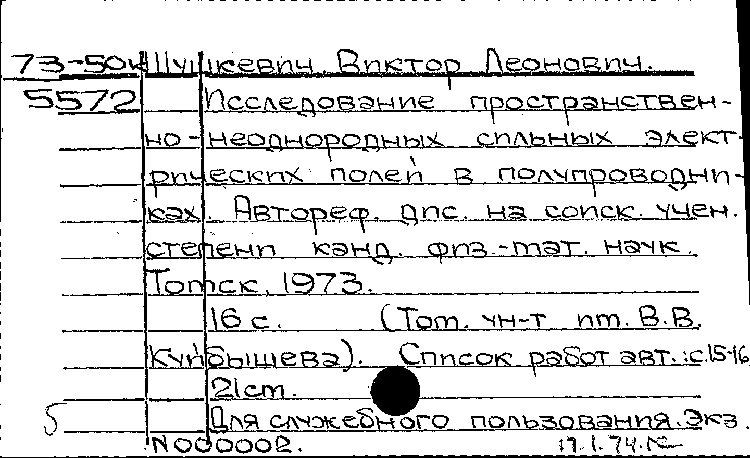 73-50к Шушкевич, Виктор Леонович.
5572 Исследование пространствен-
но-неоднородных сильных элект-
рических полей в полупроводни-
ках. Автореф. дис. на соиск. учен.
степени канд. физ.-мат. наук.
Томск, 1973.
16 с. (Том. ун-т им. В.В.
Куйбышева). Список работ авт.: с 15-16
21 cm.
Для служебного пользования. Экз.
N000002. 17.1.74.